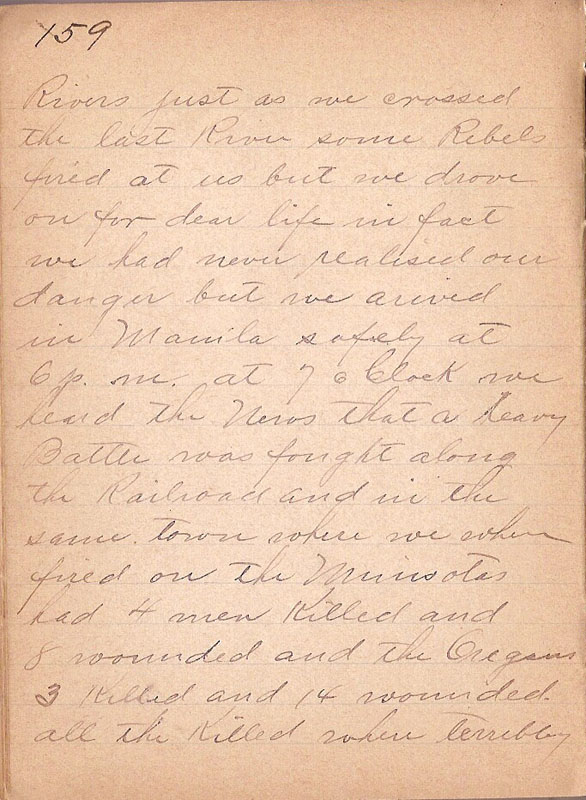 159
Rivers just as we crossed
the last River some Rebels
fired at us but we drove
on for dear life in fact
we had never realised our
danger but we arived
in Manila safely at
6 p. m. at 7 o Clock we
heard the News that a heavy
Battle was fought along
the Railroad and in the
same town where we when
fired on the Minnsotas
had 4 men Killed and
8 wounded and the Oregons
3 Killed and 14 wounded.
all the Killed where terribly